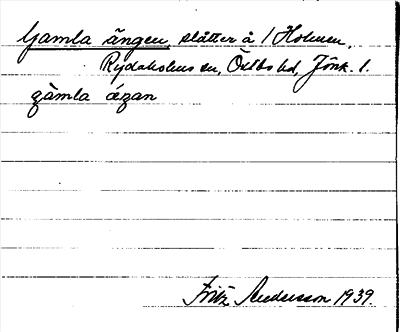 Gamla ängen, slåtter å 1 Holmen,
Rydaholms sn, Östbo hd, Jönk. l.
gàmla ǽŋan
Fritz Andersson 1939.